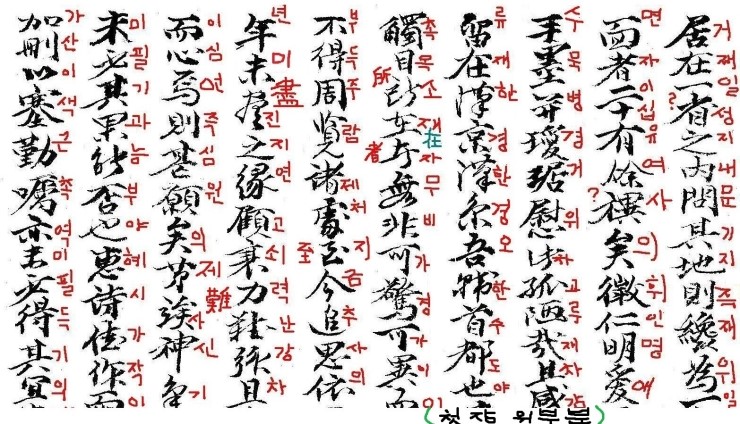 居在一省之內問其地則纔爲一
거재일성지내문기지즉재위일
?
面者二十有餘禩矣徽仁明愛
면자이십유여사의휘인명애
?
手墨并瓊琚慰此孤陋哉且感
수묵병경거위차고루재차감
留在漢京漢京吾韓首都也
류재한경한경오한수도야
觸目所在者無非可驚可異而
촉목소재자무비가경가이이
所 在 者
不得周覽諸處至今追思依
부득주람제처지금추사의
至
年未盡之緣顧衰力難强且
년미진지연고쇠력난강차
盡 難
而心焉則甚願矣第竢神氣
이심언즉심원의제사신기
未必其果能否也惠詩佳作而
미필기과능부야혜시가작이
加刪以塞勤囑亦未必得其宜
가산이색근촉역미필득기의